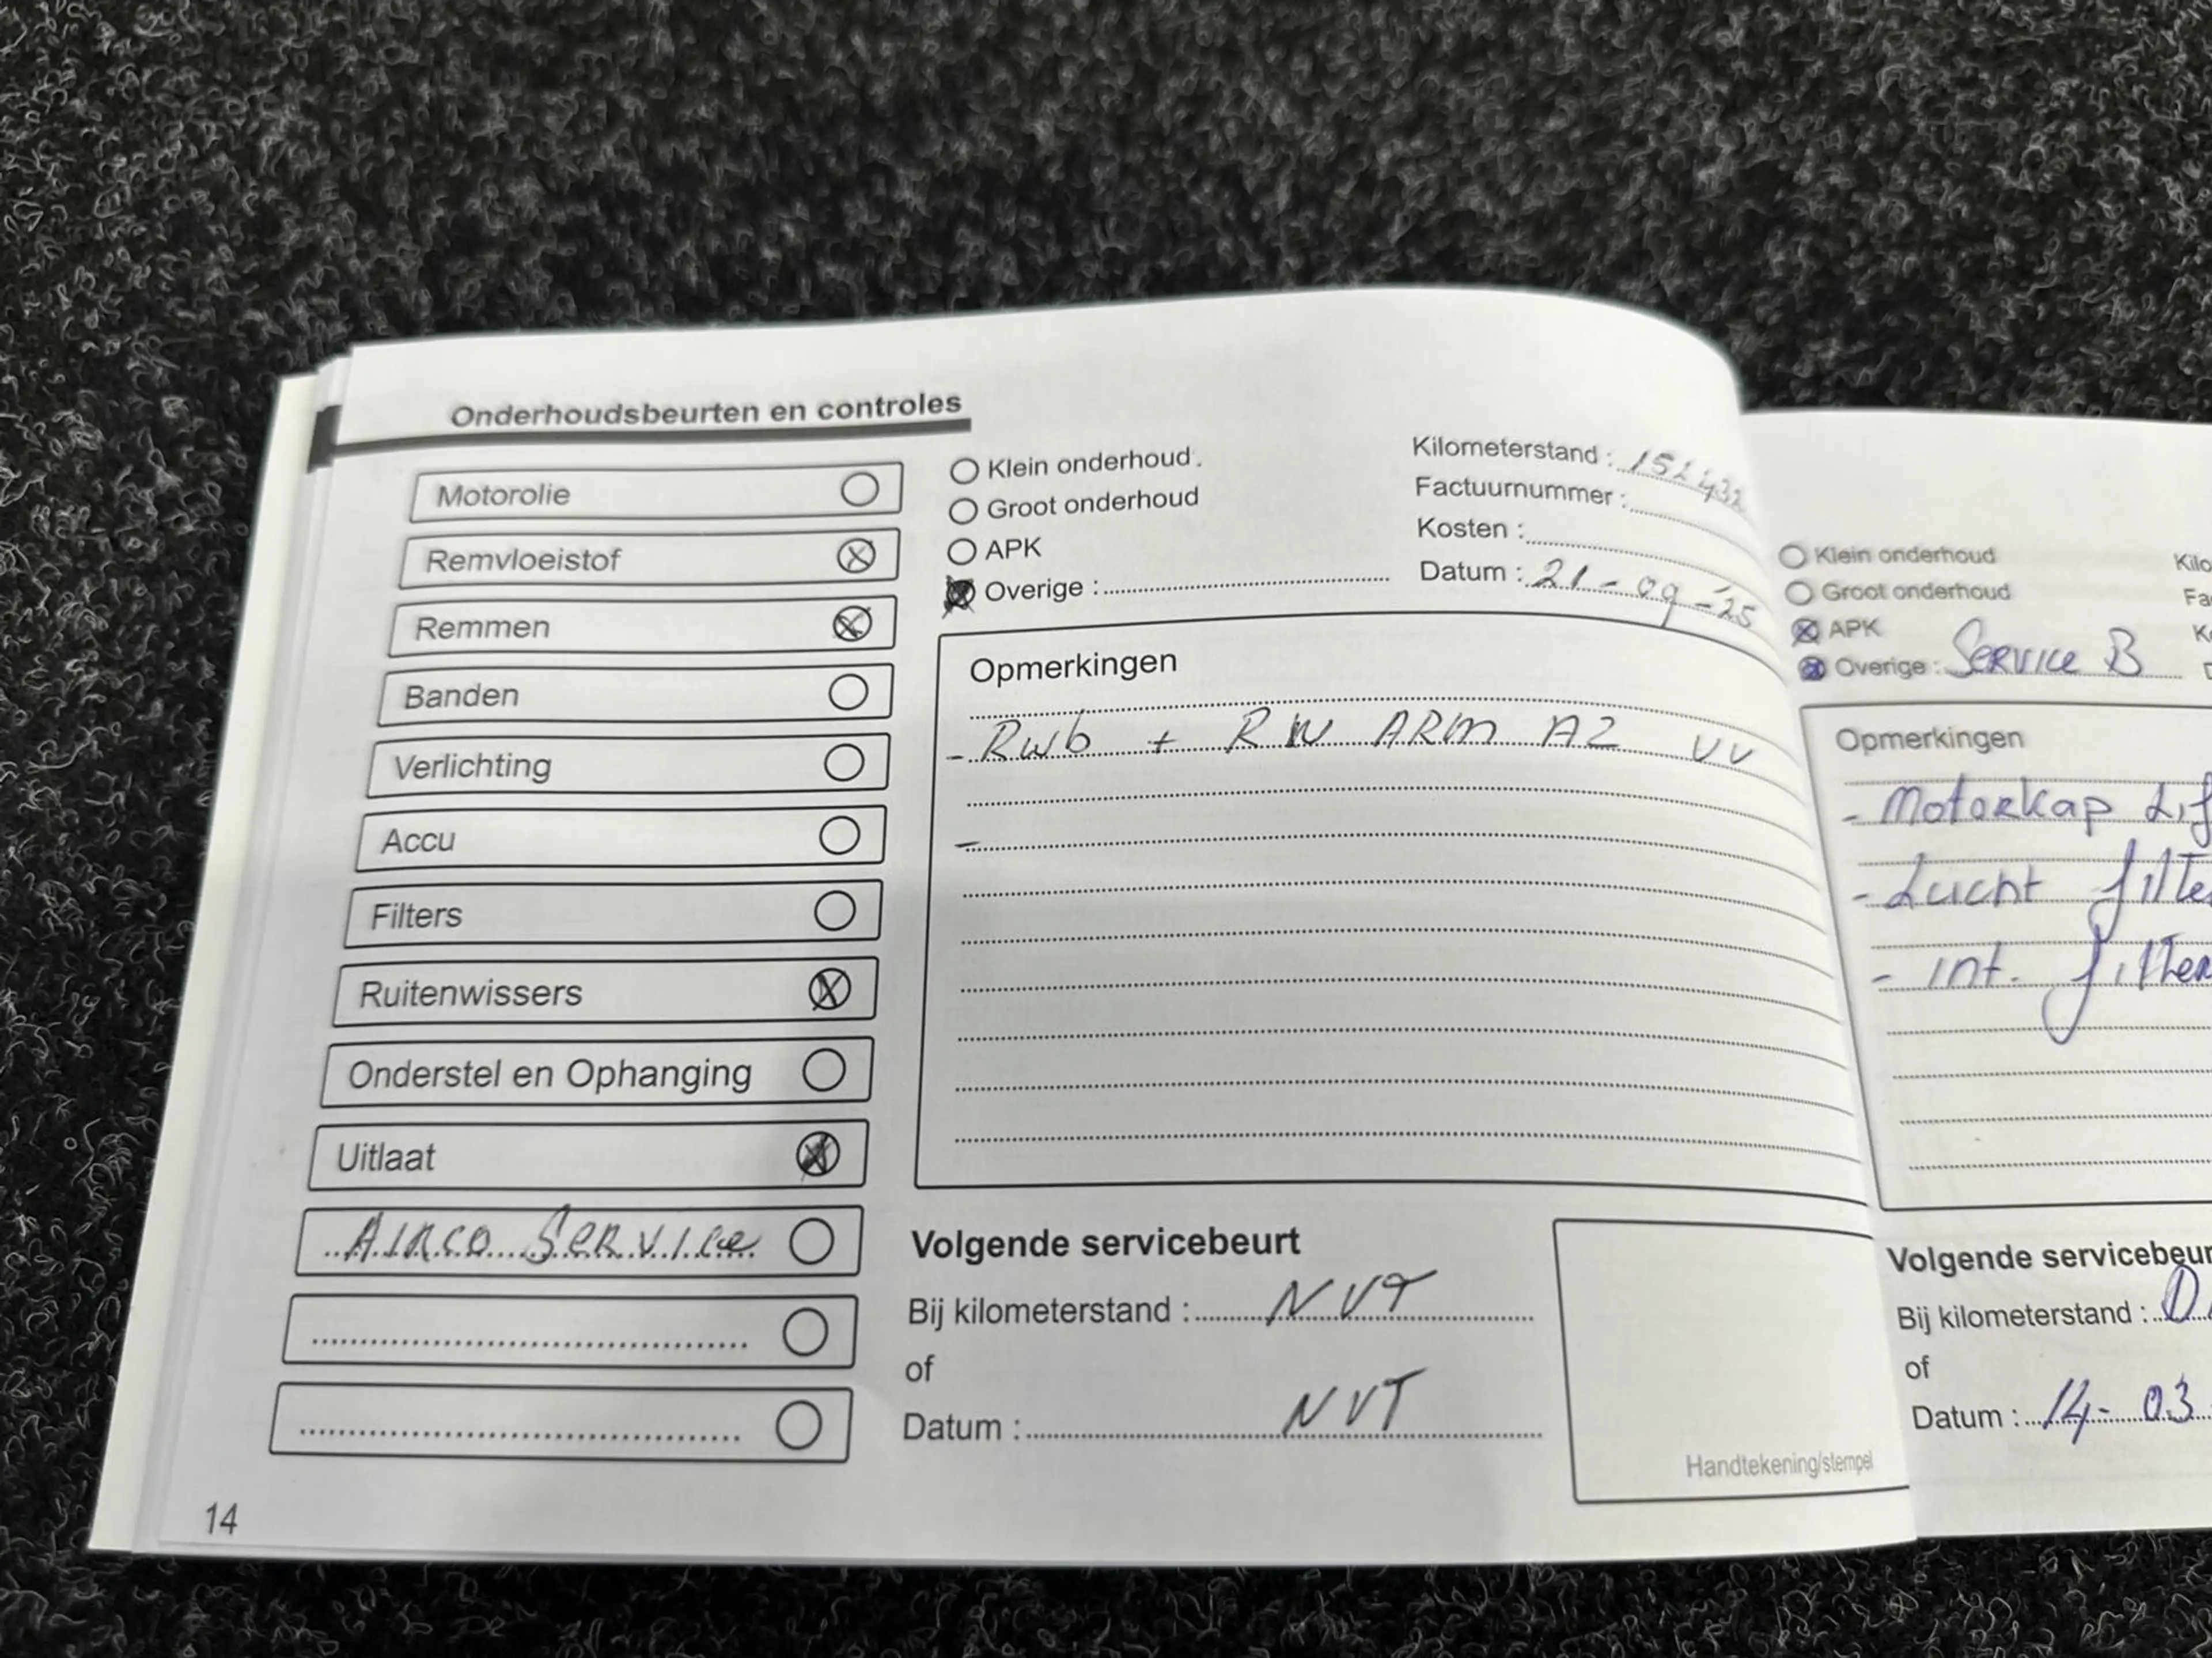 Onderhoudsbeurten en controles
Motorolie
Remvloeistof
Remmen
Banden
Verlichting
Accu
Filters
Ruitenwissers
Onderstel en Ophanging
Uitlaat
Airco Service
14
Klein onderhoud
Groot onderhoud
APK
Overige :
Kilometerstand :
Factuurnummer :
Kosten :
Datum : 21-09-'25
Opmerkingen
- Rwb + RW ARM AZ VV
-
Volgende servicebeurt
Bij kilometerstand : NVT
of
Datum : NVT
Handtekening/stempel
Klein onderhoud
Groot onderhoud
APK
Overige : Service B
Opmerkingen
- Motorkap
- Lucht filte
- int. filter
Volgende servicebeur
Bij kilometerstand : D
of
Datum : 14-03